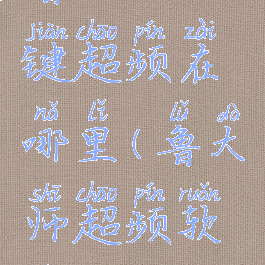 jiàn chāo pín zài
键超频在
nǎ lǐ lǔ dà
哪里(鲁大
shī chāo pín ruǎn
师超频软